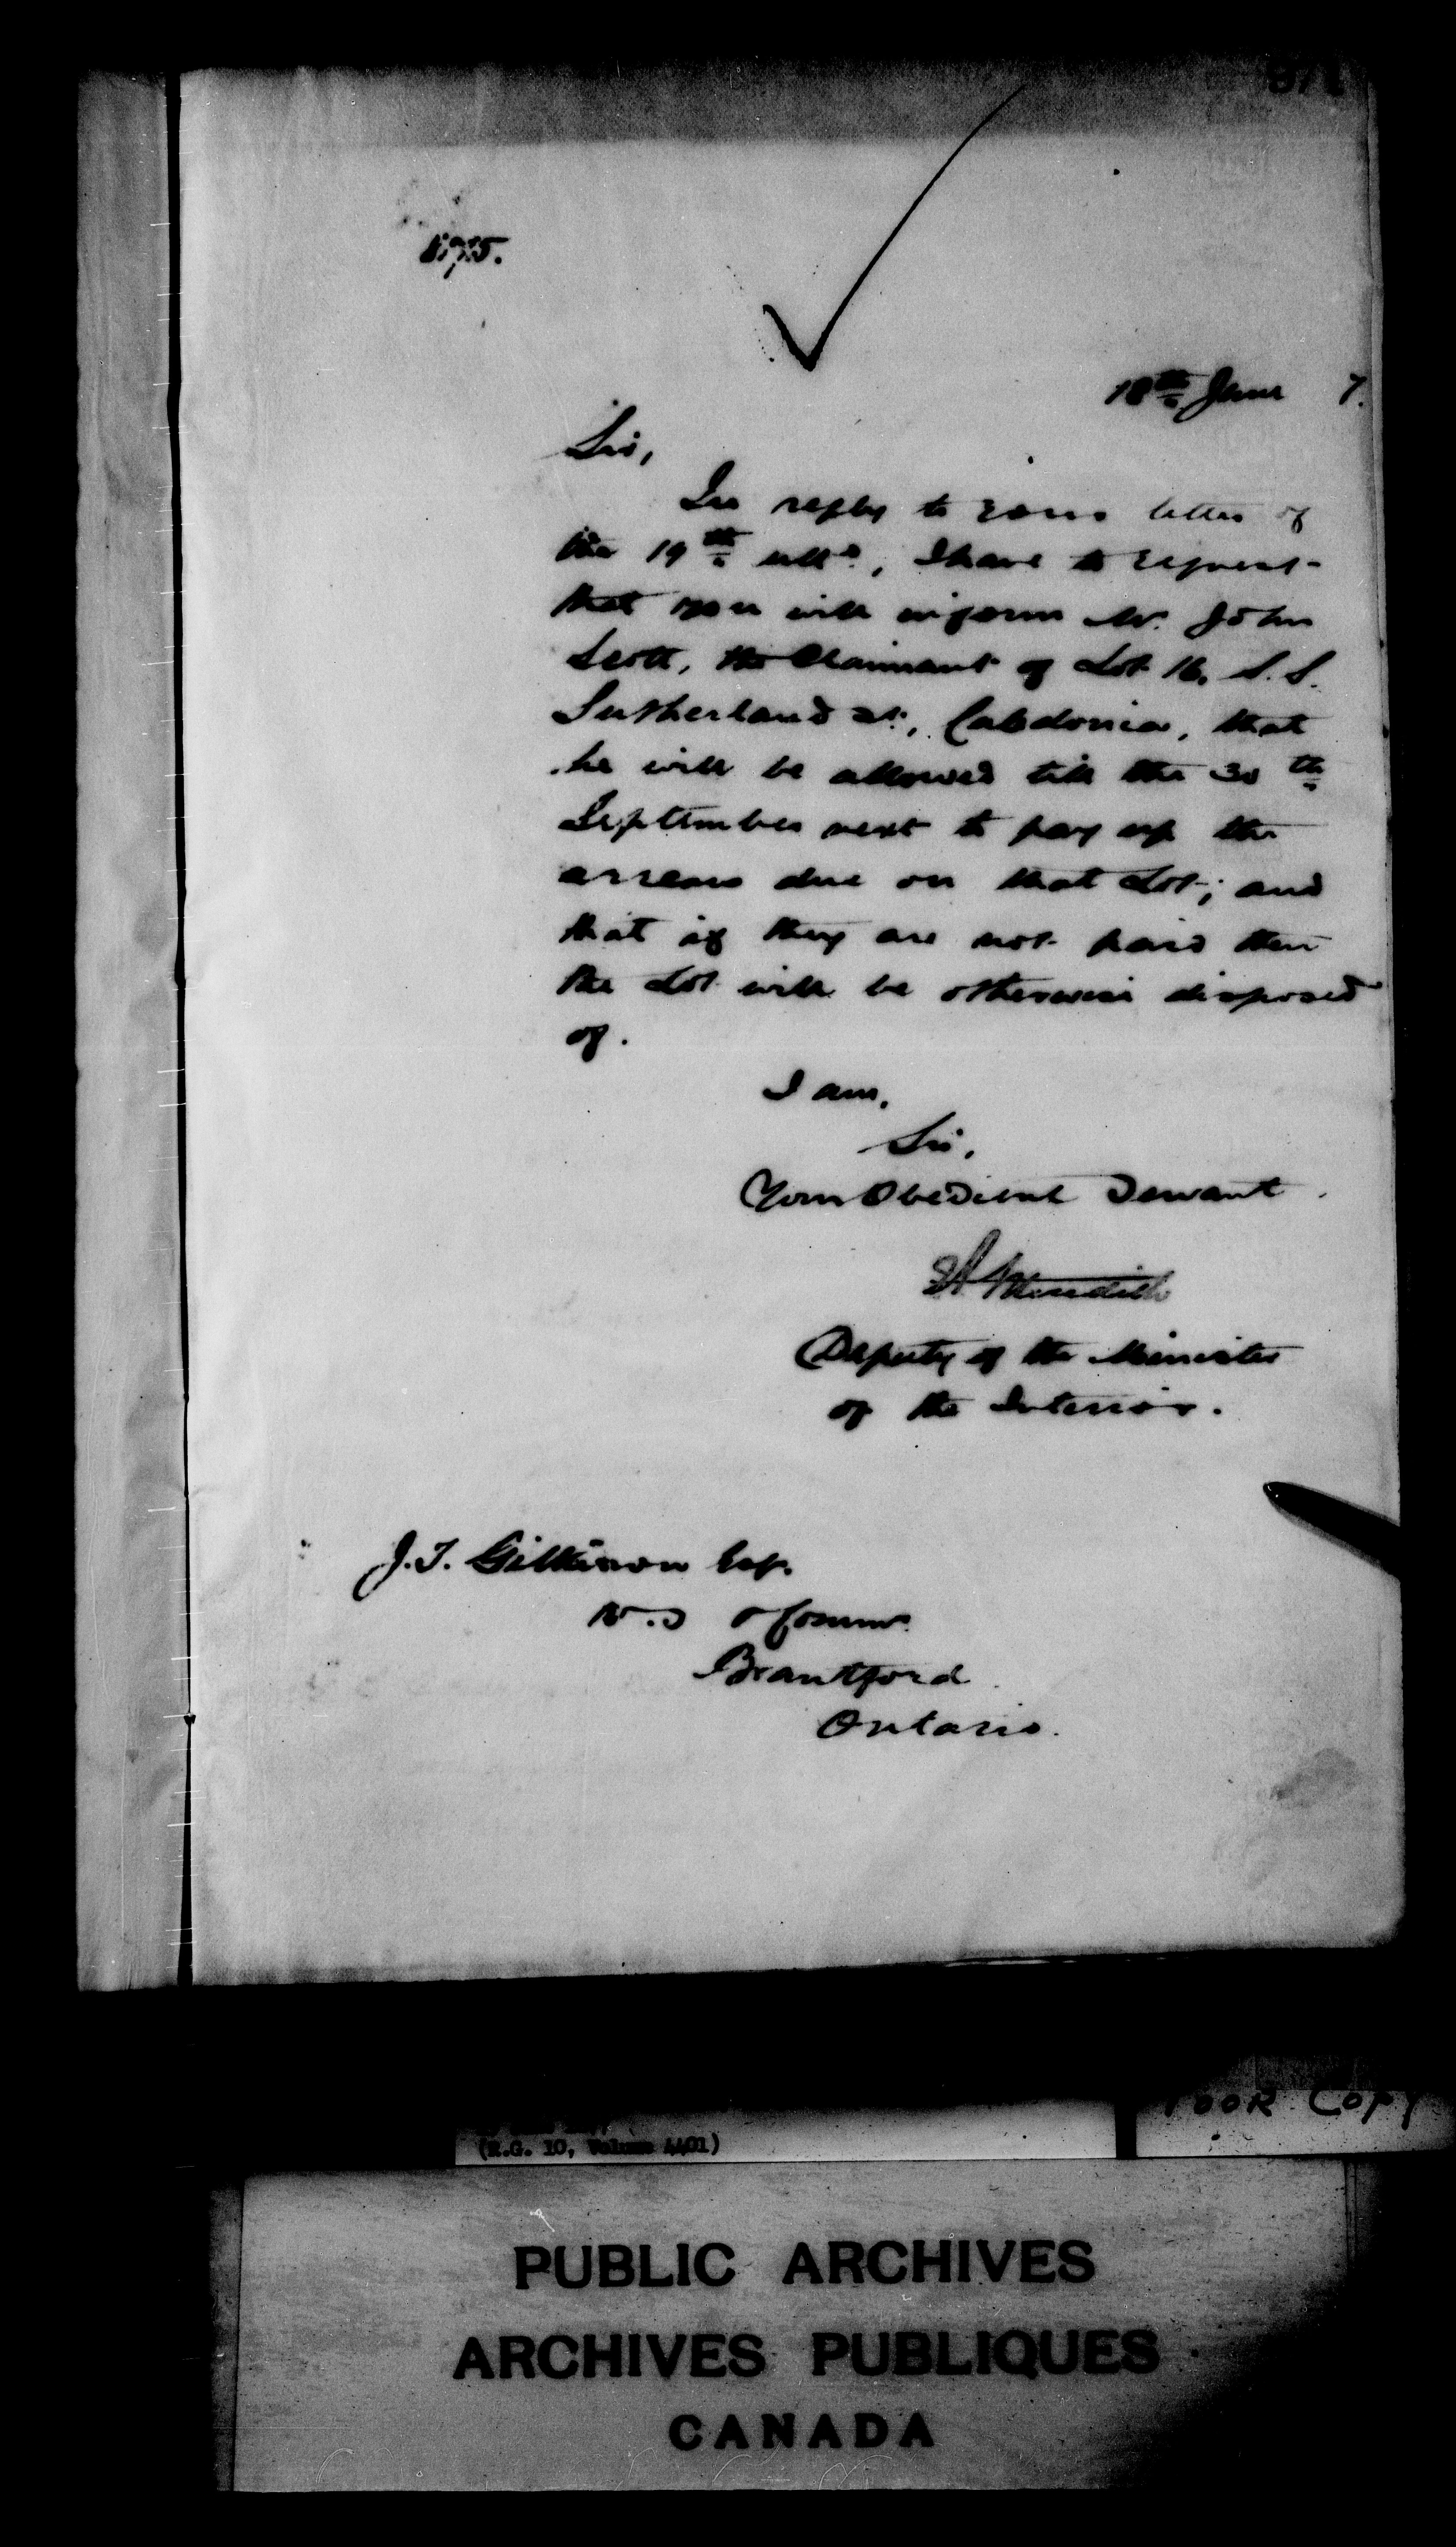 571
18th June 7.
Sir,
In reply to your letter of
the 19th ulto, I have to request
that you will inform Mr. John
Scott, the Claimant of Lot 16, S. S.
Sutherland St., Caledonia, that
he will be allowed till the 30th
September next to pay up the
arrears due on that Lot; and
that if they are not paid then
the Lot will be otherwise disposed
of.
I am,
Sir,
Your Obedient Servant
Meredith
Deputy of the Minister
of the Interior.
J.T. Gilkison Esq.
Comr.
Brantford
Ontario.
POOR COPY
(R.G. 10, Volume 4401)
PUBLIC ARCHIVES
ARCHIVES PUBLIQUES
CANADA